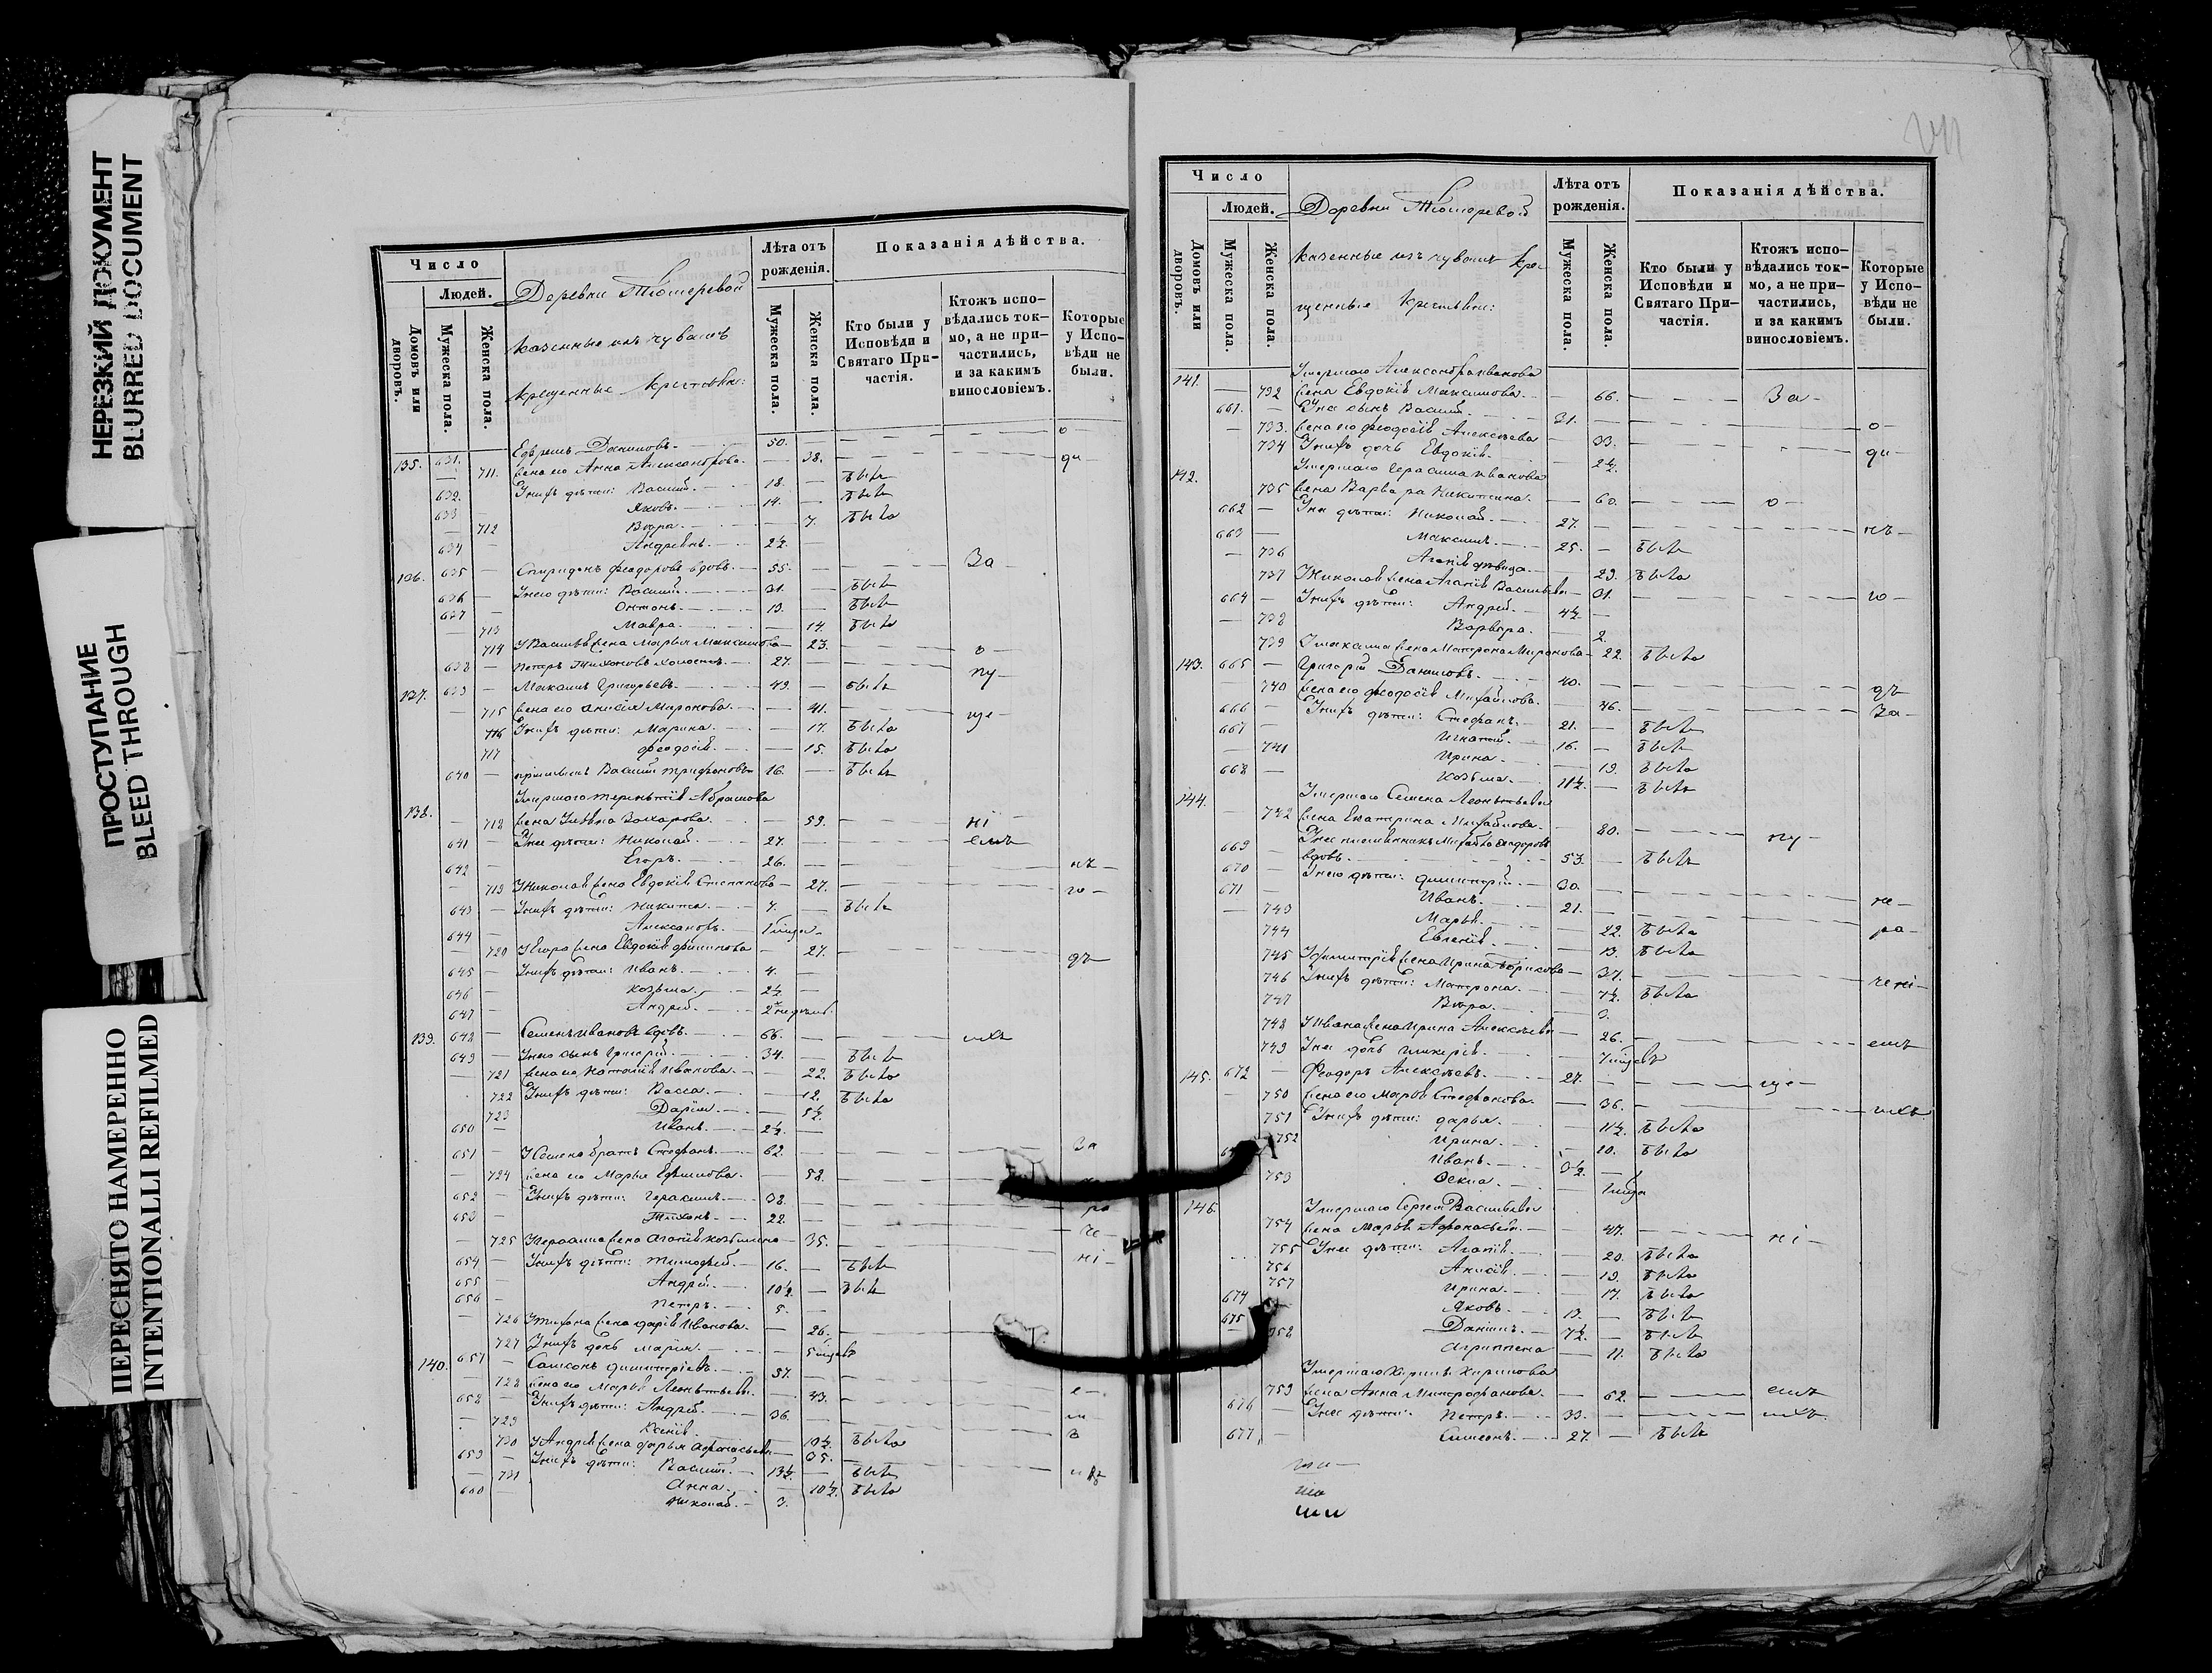 НЕРЕЗКИЙ ДОКУМЕНТ
BLURRED DOCUMENT
ПРОСТУПАНИЕ
BLEED THROUGH
ПЕРЕСНЯТО НАМЕРЕННО
INTENTIONALLI REFILMED
Число
Людей.
Домовъ или дворовъ.
Мужеска пола.
Женска пола.
Деревни Тюмеревой
казенные изъ чувашъ
крещенные крестьяне:
Лѣта отъ рожденія.
Мужеска пола.
Женска пола.
Показанія дѣйства.
Кто были у Исповѣди и Святаго Причастія.
Ктожъ исповѣдались токмо, а не причастились, и за какимъ винословіемъ.
Которые у Исповѣди не были.
135. 631. Ефремъ Даниловъ 50. о
711. Жена его Анна Александрова 38. ди
632. У нихъ дѣти: Василій 18. былъ
633 Яковъ 14. былъ
712 Вѣра 7. была
634 Андреянъ 2½.
136. 635 Спиридонъ Феодоровъ вдовъ 55. За
636 У него дѣти: Василій 31. былъ
637 Антонъ 19. былъ
713 Мавра 14. была
714 У Василія жена Марья Максимова 23. о
638 Петръ Тихоновъ холостъ 27. пу
137. 639 Максимъ Григорьевъ 49. былъ
715 Жена его Анисія Миронова 41. ще
716 У нихъ дѣти: Марина 17. была
717 Феодосія 15. была
640 Василій Трифоновъ 16. былъ
Умершаго Терентія Абрамова
138. 718 Жена Ульяна Захарова 59. ні
641 У нея дѣти: Николай 27. емъ
642 Егоръ 26. нъ
719 У Николая жена Евдокія Степанова 27. го
643 У нихъ дѣти: Никита 7. былъ
644 Александръ
720 У Егора жена Евдокія Филипова 27. дъ
645 У нихъ дѣти: Иванъ 4.
646 Козьма 2½
647 Андрей
139. 648 Семенъ Ивановъ вдовъ 66. ихъ
649 У него сынъ Григорій 34. былъ
721 Жена его Наталія Иванова 22. была
722 У нихъ дѣти: Васса 12. была
723 Дарія 5½
650 Иванъ 2½.
651 У Семена братъ Стефанъ 62. За
724 Жена его Марья Ефимова 58.
652 У нихъ дѣти: Герасимъ 38. ра
653 Тихонъ 22. че
725 У Герасима жена Агапія Козьмина 35. ні
654 У нихъ дѣти: Тимофей 16. былъ
655 Андрей 10½. былъ
656 Петръ 5.
726 У Тихона жена Дарія Иванова 26.
727 У нихъ дочь Марія
140. 657 Самсонъ Димитріевъ 57.
728 Жена его Марья Леонтьева 43. е
658 У нихъ дѣти: Андрей 36. м
729 Ксенія 10½. была
730 У Андрея жена Дарья Афонасьева 35.
659 У нихъ дѣти: Василій 13½. былъ
731 Анна 10½. была
660 Николай 3.
Число
Людей.
Домовъ или дворовъ.
Мужеска пола.
Женска пола.
Деревни Тюмеревой
казенные изъ чувашъ кре
щенные крестьяне:
Лѣта отъ рожденія.
Мужеска пола.
Женска пола.
Показанія дѣйства.
Кто были у Исповѣди и Святаго Причастія.
Ктожъ исповѣдались токмо, а не причастились, и за какимъ винословіемъ.
Которые у Исповѣди не были.
141. Умершаго Александра Иванова
732 Жена Евдокія Максимова 66. За
661. У нея сынъ Василій 31. о
733. Жена его Феодосія Алексѣева 33. ди
734 У нихъ дочь Евдокія 2½.
142. Умершаго Герасима Иванова
735 Жена Варвара Никитина 60. о
662 У нея дѣти: Николай 27. нъ
663 Максимъ 25. былъ
736 Агапія дѣвица 29. была
737 У Николая жена Агапія Васильева 31. го
664 У нихъ дѣти: Андрей 4½.
738 Варвара 2.
739 У Максима жена Матрона Миронова 22. была
143. 665 Григорій Даниловъ 40. дъ
740 Жена его Феодосія Михайлова 46. За
666 У нихъ дѣти: Стефанъ 21. былъ
667 Игнатій 16. былъ
741 Ирина 19. была
668 Козьма 11½. былъ
144. Умершаго Семена Леонтьева
742 Жена Екатерина Михайлова 80. пу
669 У нея племянникъ Михайло Феодоровъ
вдовъ 53. былъ
670 У него дѣти: Димитрій 30. не
671 Иванъ 21. ра
743 Марья 22. была
744 Евгенія 13. была
745 У Димитрія жена Ирина Борисова 37. чені
746 У нихъ дѣти: Матрона 7½. была
747 Вѣра
748 У Ивана жена Ирина Алексѣева 26. емъ
749 У нея дочь Гликерія
145. 672 Феодоръ Алексѣевъ 27. ще
750 Жена его Марья Стефанова 36. ихъ
751 У нихъ дѣти: Дарья 11½. была
752 Ирина 10. была
Иванъ 3½.
753 Фекла
146. Умершаго Сергея Васильева
754 Жена Марья Афонасьева 47. ні
755 У нея дѣти: Агапія 20. была
756 Анисія 19. была
757 Ирина 17. была
674 Яковъ 13. былъ
675 Даніилъ 7½. былъ
758 Агрипена 11. была
759 Жена Анна Митрофанова 62. емъ
676 У нея дѣти: Петръ 33. ихъ
677 Симеонъ 27. былъ